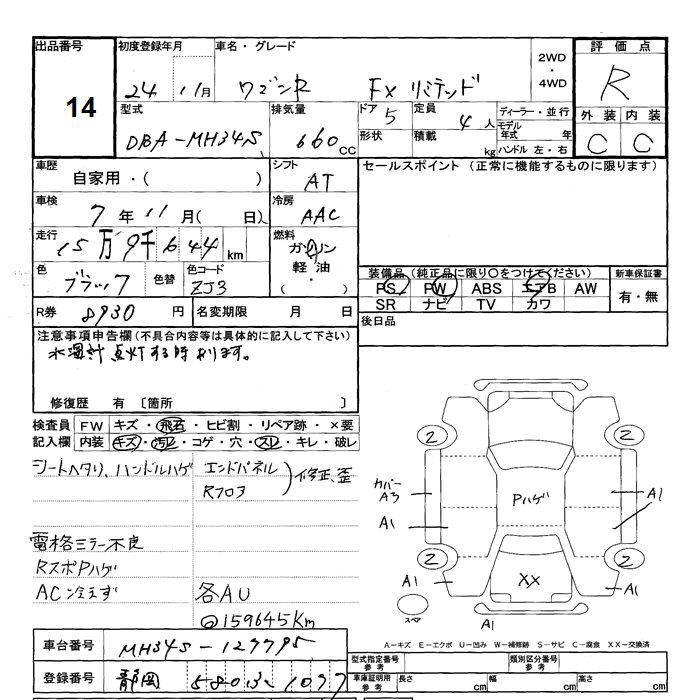 出品番号 初度登録年月 車名・グレード 2WD・4WD 評価点
14 24 11月 ワゴンR FX リミテッド R
型式 排気量 ドア 定員 ディーラー・並行 外装 内装
DBA-MH34S 660cc 5 4人 モデル年式 年 C C
形状 積載 kg ハンドル 左・右
車歴 シフト セールスポイント (正常に機能するものに限ります)
自家用・( ) AT
車検 冷房
7年11月( 日) AAC
走行 燃料
15万9千644km ガソリン
軽油
・( )
色 色替 色コード 装備品 (純正品に限り○をつけてください) 新車保証書
ブラック ZJ3 PS PW ABS エアB AW 有・無
SR ナビ TV カワ
R券 8930円 名変期限 月 日 後日品
注意事項申告欄(不具合内容等は具体的に記入して下さい)
水温計点灯する時有ります。
修復歴 有 〔箇所 〕
検査員 FW キズ・飛石・ヒビ割・リペア跡・×要
記入欄 内装 キズ・汚レ・コゲ・穴・スレ・キレ・破レ
シートヘタリ、ハンドルハゲ エンドパネル 修正、歪
Rフロア
電格ミラー不良
RスポPハゲ
AC冷えず 各AU
@159645Km
2 2
カバー
A3 Pハゲ A1
A1
2 2
A1 XX A1
スペア A1
A-キズ E-エクボ U-凹み W-補修跡 S-サビ C-腐食 XX-交換済
車台番号 MH34S-129795 型式指定番号 参考 類別区分番号 参考
登録番号 静岡 580 い 1097 車庫証明用 参考 長さ cm 幅 cm 高さ cm